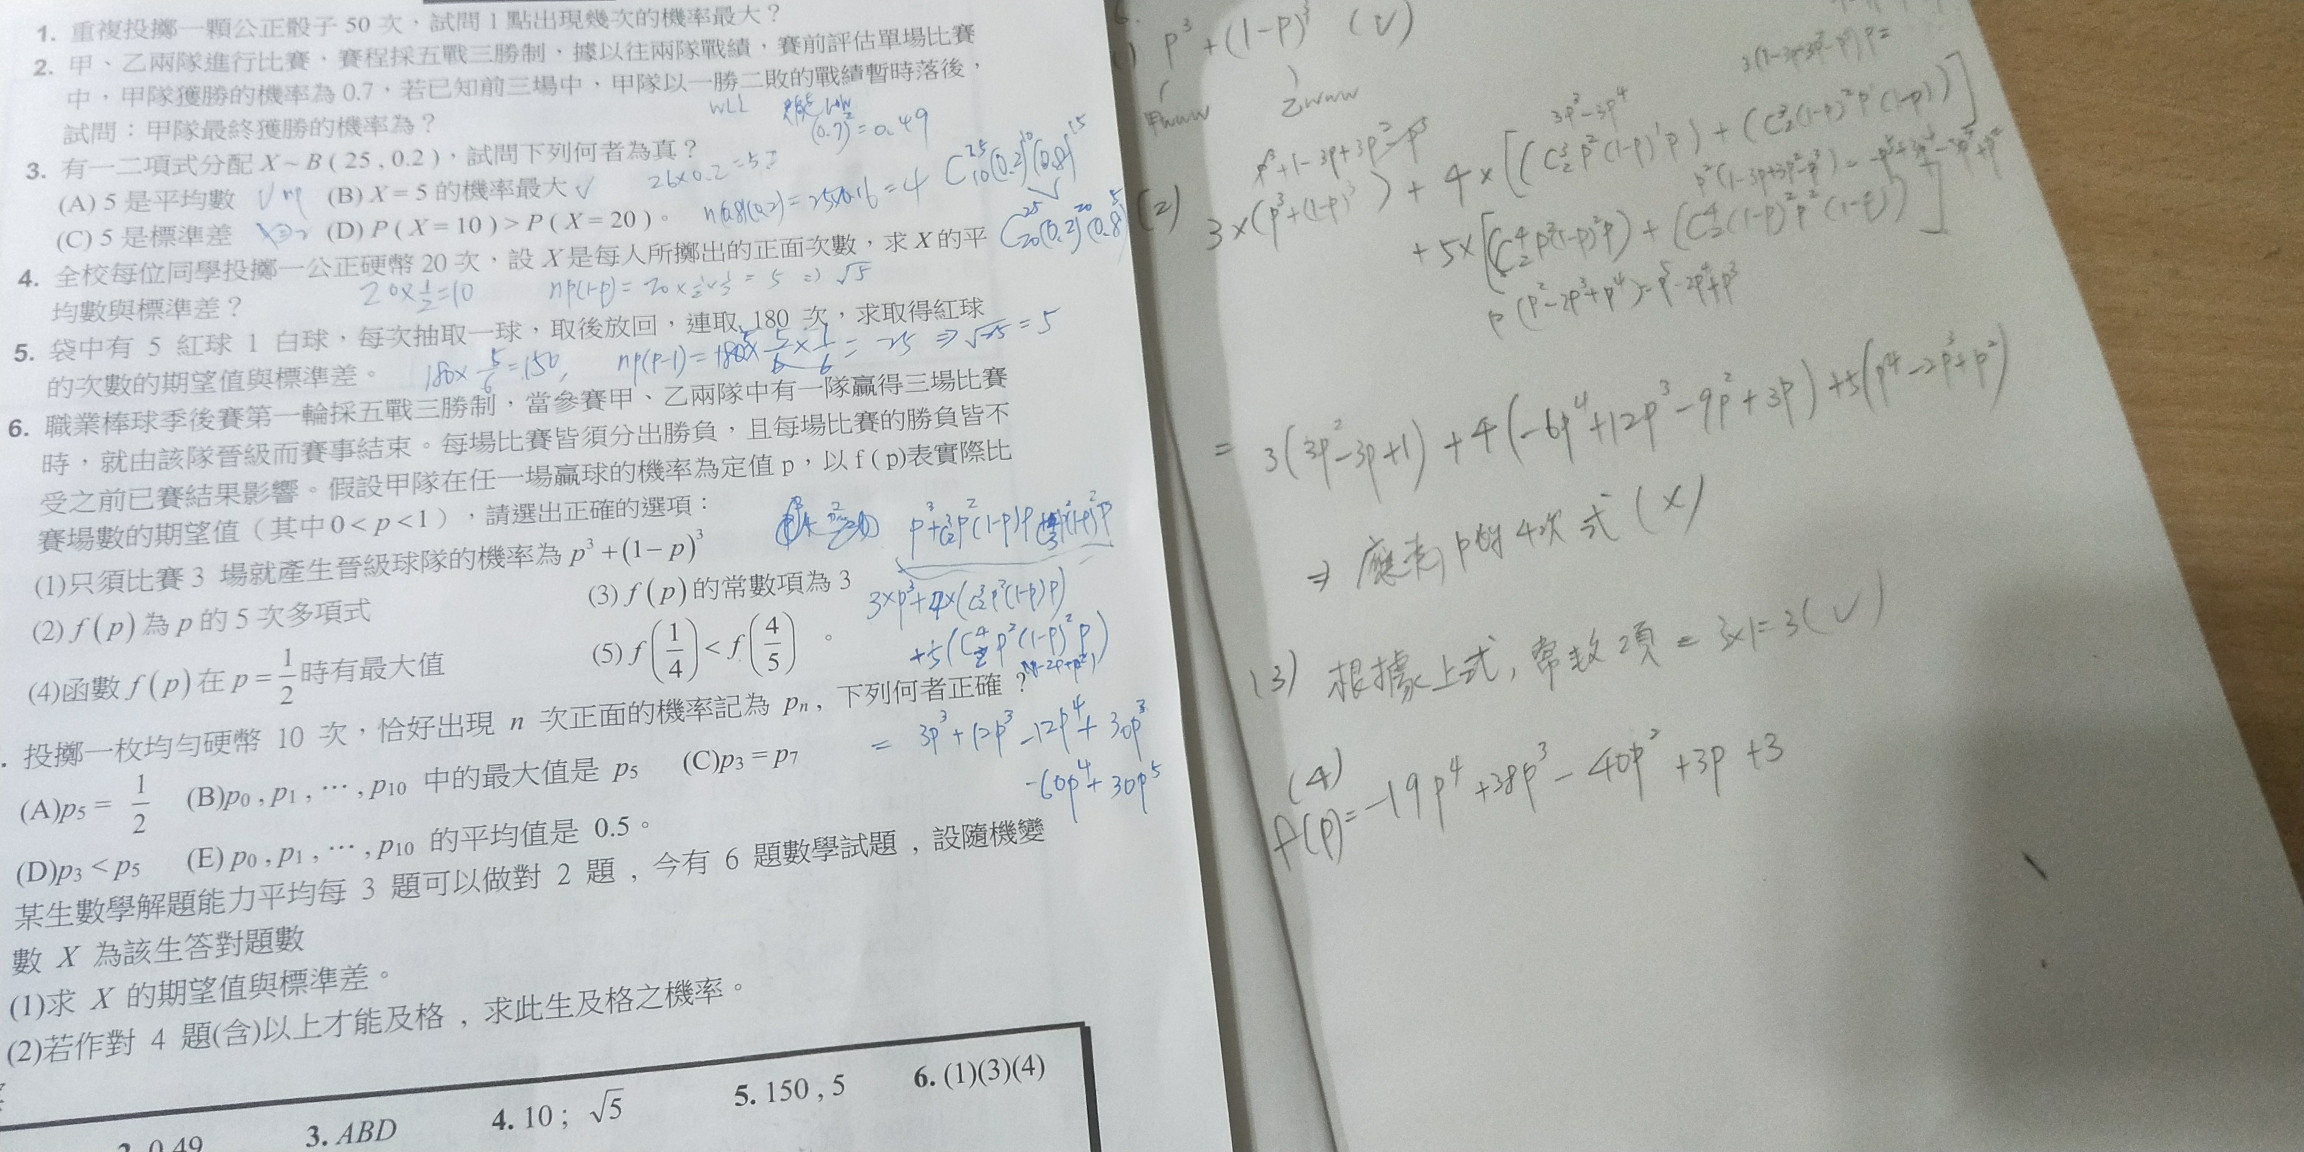 1. 重複投擲一顆公正骰子 50 次，試問 1 點出現幾次的機率最大？
2. 甲、乙兩隊進行比賽，賽程採五戰三勝制，據以往兩隊戰績，賽前評估單場比賽
中，甲隊獲勝的機率為 0.7，若已知前三場中，甲隊以一勝二敗的戰績暫時落後，
WLL
試問：甲隊最終獲勝的機率為？
(0.7)²=0.49
3. 有一二項式分配 X~B(25,0.2)，試問下列何者為真？
(A) 5 是平均數 (B) X=5 的機率最大✓
(C) 5 是標準差 (D) P(X=10)>P(X=20)。
4. 全校每位同學投擲一公正硬幣 20 次，設 X 是每人所擲出的正面次數，求 X 的平
均數與標準差？
20×½=10 np(1-p)=20×½×½=5 ⇒ √5
5. 袋中有 5 紅球 1 白球，每次抽取一球，取後放回，連取 180 次，求取得紅球
的次數的期望值與標準差。
180×5/6=150,
6. 職業棒球季後賽第一輪採五戰三勝制，當參賽甲、乙兩隊中有一隊贏得三場比賽
時，就由該隊晉級而賽事結束。每場比賽皆須分出勝負，且每場比賽的勝負皆不
受之前已賽結果影響。假設甲隊在任一場贏球的機率為定值 p，以 f(p)表實際比
賽場數的期望值（其中0<p<1），請選出正確的選項：
(1)只須比賽 3 場就產生晉級球隊的機率為 p³+(1−p)³
(2) f(p) 為 p 的 5 次多項式 (3) f(p) 的常數項為 3
(4)函數 f(p) 在 p=1/2 時有最大值 (5) f(1/4)<f(4/5)。
3×p³+4×(C³₂p²(1-p)p)
= 3p³+12p³-12p⁴+30p³
-60p⁴+30p⁵
投擲一枚均勻硬幣 10 次，恰好出現 n 次正面的機率記為 pₙ，下列何者正確？
(A)p₅=1/2 (B)p₀,p₁,⋯,p₁₀ 中的最大值是 p₅ (C)p₃=p₇
(D)p₃<p₅ (E) p₀,p₁,⋯,p₁₀ 的平均值是 0.5。
某生數學解題能力平均每 3 題可以做對 2 題，今有 6 題數學試題，設隨機變
數 X 為該生答對題數
(1)求 X 的期望值與標準差。
(2)若作對 4 題(含)以上才能及格，求此生及格之機率。
2. 0.49 3. ABD 4. 10；√5 5. 150,5 6. (1)(3)(4)
p³+(1-p)³ (✓)
甲www 乙www
(2) 3×(p³+(1-p)³)+4×[(C³₂p²(1-p)'p)+(C³₂(1-p)²p'(1-p))]
= 3(3p²-3p+1)+4(-6p⁴+12p³-9p²+3p)+5(p⁴-2p³+p²)
⇒ 應為p的4次式 (×)
(3) 根據上式,常數項=3×1=3(✓)
(4)
f(p)=-19p⁴+38p³-40p²+3p+3